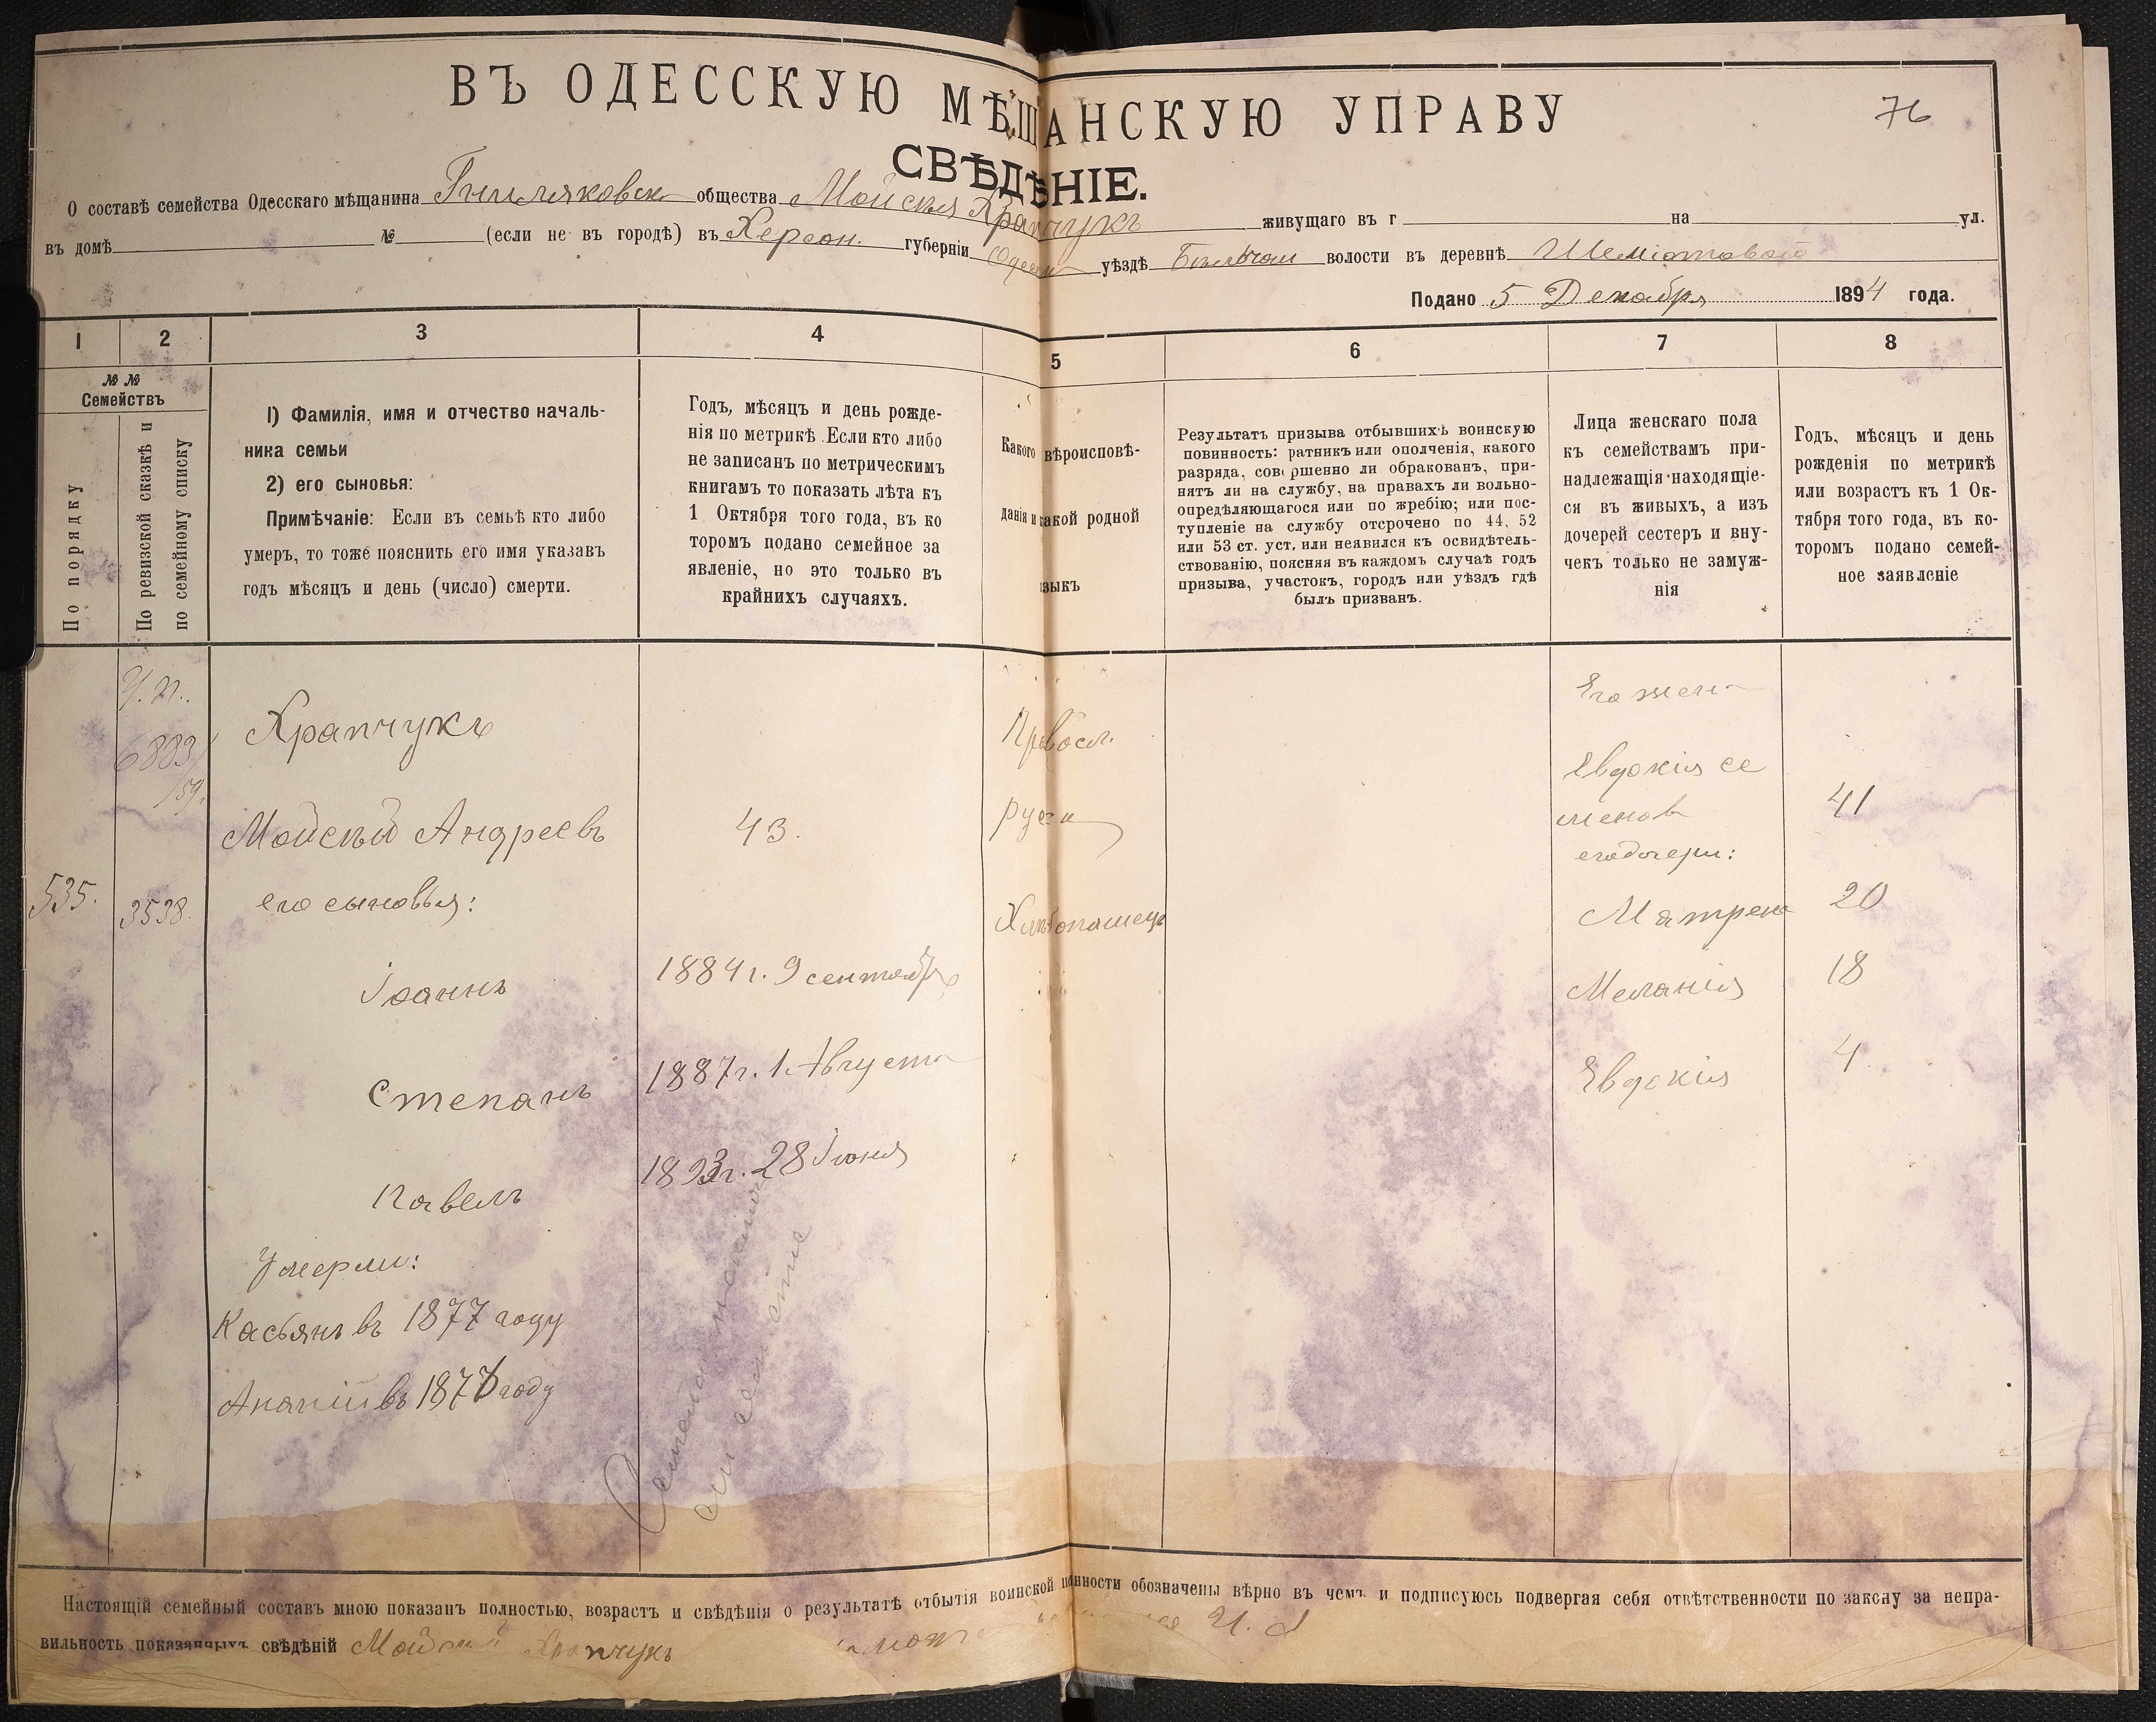 76
ВЪ ОДЕССКУЮ МѢЩАНСКУЮ УПРАВУ
СВѢДѢНІЕ.
О составѣ семейства Одесскаго мѣщанина Гниляковск общества Мойсея Храпчукъ живущаго въ г на ул.
въ домѣ № (если не въ городѣ) въ Херсон. губерніи Одесск уѣздѣ волости въ деревнѣ Шеміотовой
Подано 5 Декабря 1894 года.
1 2 3 4 5 6 7 8
№ №
Семействъ
По порядку
По ревизской сказкѣ и
по семейному списку
1) Фамилія, имя и отчество началь-
ника семьи
2) его сыновья:
Примѣчаніе: Если въ семьѣ кто либо
умеръ, то тоже пояснить его имя указавъ
годъ мѣсяцъ и день (число) смерти.
Годъ, мѣсяцъ и день рожде-
нія по метрикѣ. Если кто либо
не записанъ по метрическимъ
книгамъ то показать лѣта къ
1 Октября того года, въ ко
торомъ подано семейное за
явленіе, но это только въ
крайнихъ случаяхъ.
Какого вѣроисповѣ-
данія и какой родной
языкъ
Результатъ призыва отбывшихъ воинскую
повинность: ратникъ или ополченія, какого
разряда, совершенно ли обракованъ, при-
нятъ ли на службу, на правахъ ли вольно-
опредѣляющагося или по жребію; или пос-
тупленіе на службу отсрочено по 44, 52
или 53 ст. уст. или неявился къ освидѣтель-
ствованію, поясняя въ каждомъ случаѣ годъ
призыва, участокъ, городъ или уѣздъ гдѣ
былъ призванъ.
Лица женскаго пола
къ семействамъ при-
надлежащія находящіе-
ся въ живыхъ, а изъ
дочерей сестеръ и вну-
чекъ только не замуж-
нія
Годъ, мѣсяцъ и день
рожденія по метрикѣ
или возрастъ къ 1 Ок-
тября того года, въ ко-
торомъ подано семей-
ное заявленіе
Его жена
Храпчукъ Правосл.
6883/
159.
Евдокія Се
менов 41
Мойсей Андреевъ 43. русск
его дочери:
535. 3538. его сыновья: Хлѣбопашецъ Матрена 20
Іоаннъ 1884 г. 9 сентября Меланія 18
Степанъ 1887 г. 1 Августа Евдокія 4
Павелъ 1893 г. 28 Іюня
Умерли:
Касьянъ въ 1877 году
въ 1878 году
Настоящій семейный составъ мною показанъ полностью, возрастъ и свѣдѣнія о результатѣ отбытія воинской повинности обозначены вѣрно въ чемъ и подписуюсь подвергая себя отвѣтственности по закону за непра-
вильность показанныхъ свѣдѣній Мойсей Храпчукъ